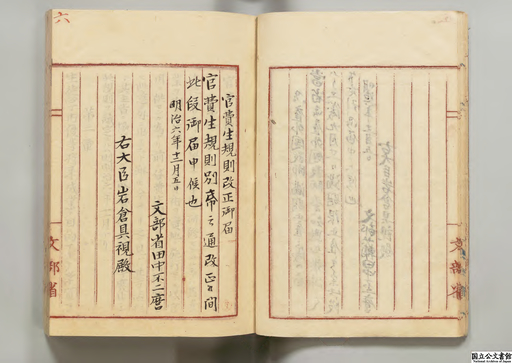 官費生規則改正御届
官費生規則別冊之通改正候間
此段御届申候也
明治六年十二月五日
文部省田中不二麿
右大臣岩倉具視殿
六
文部省
文部省
国立公文書館
National Archives of Japan